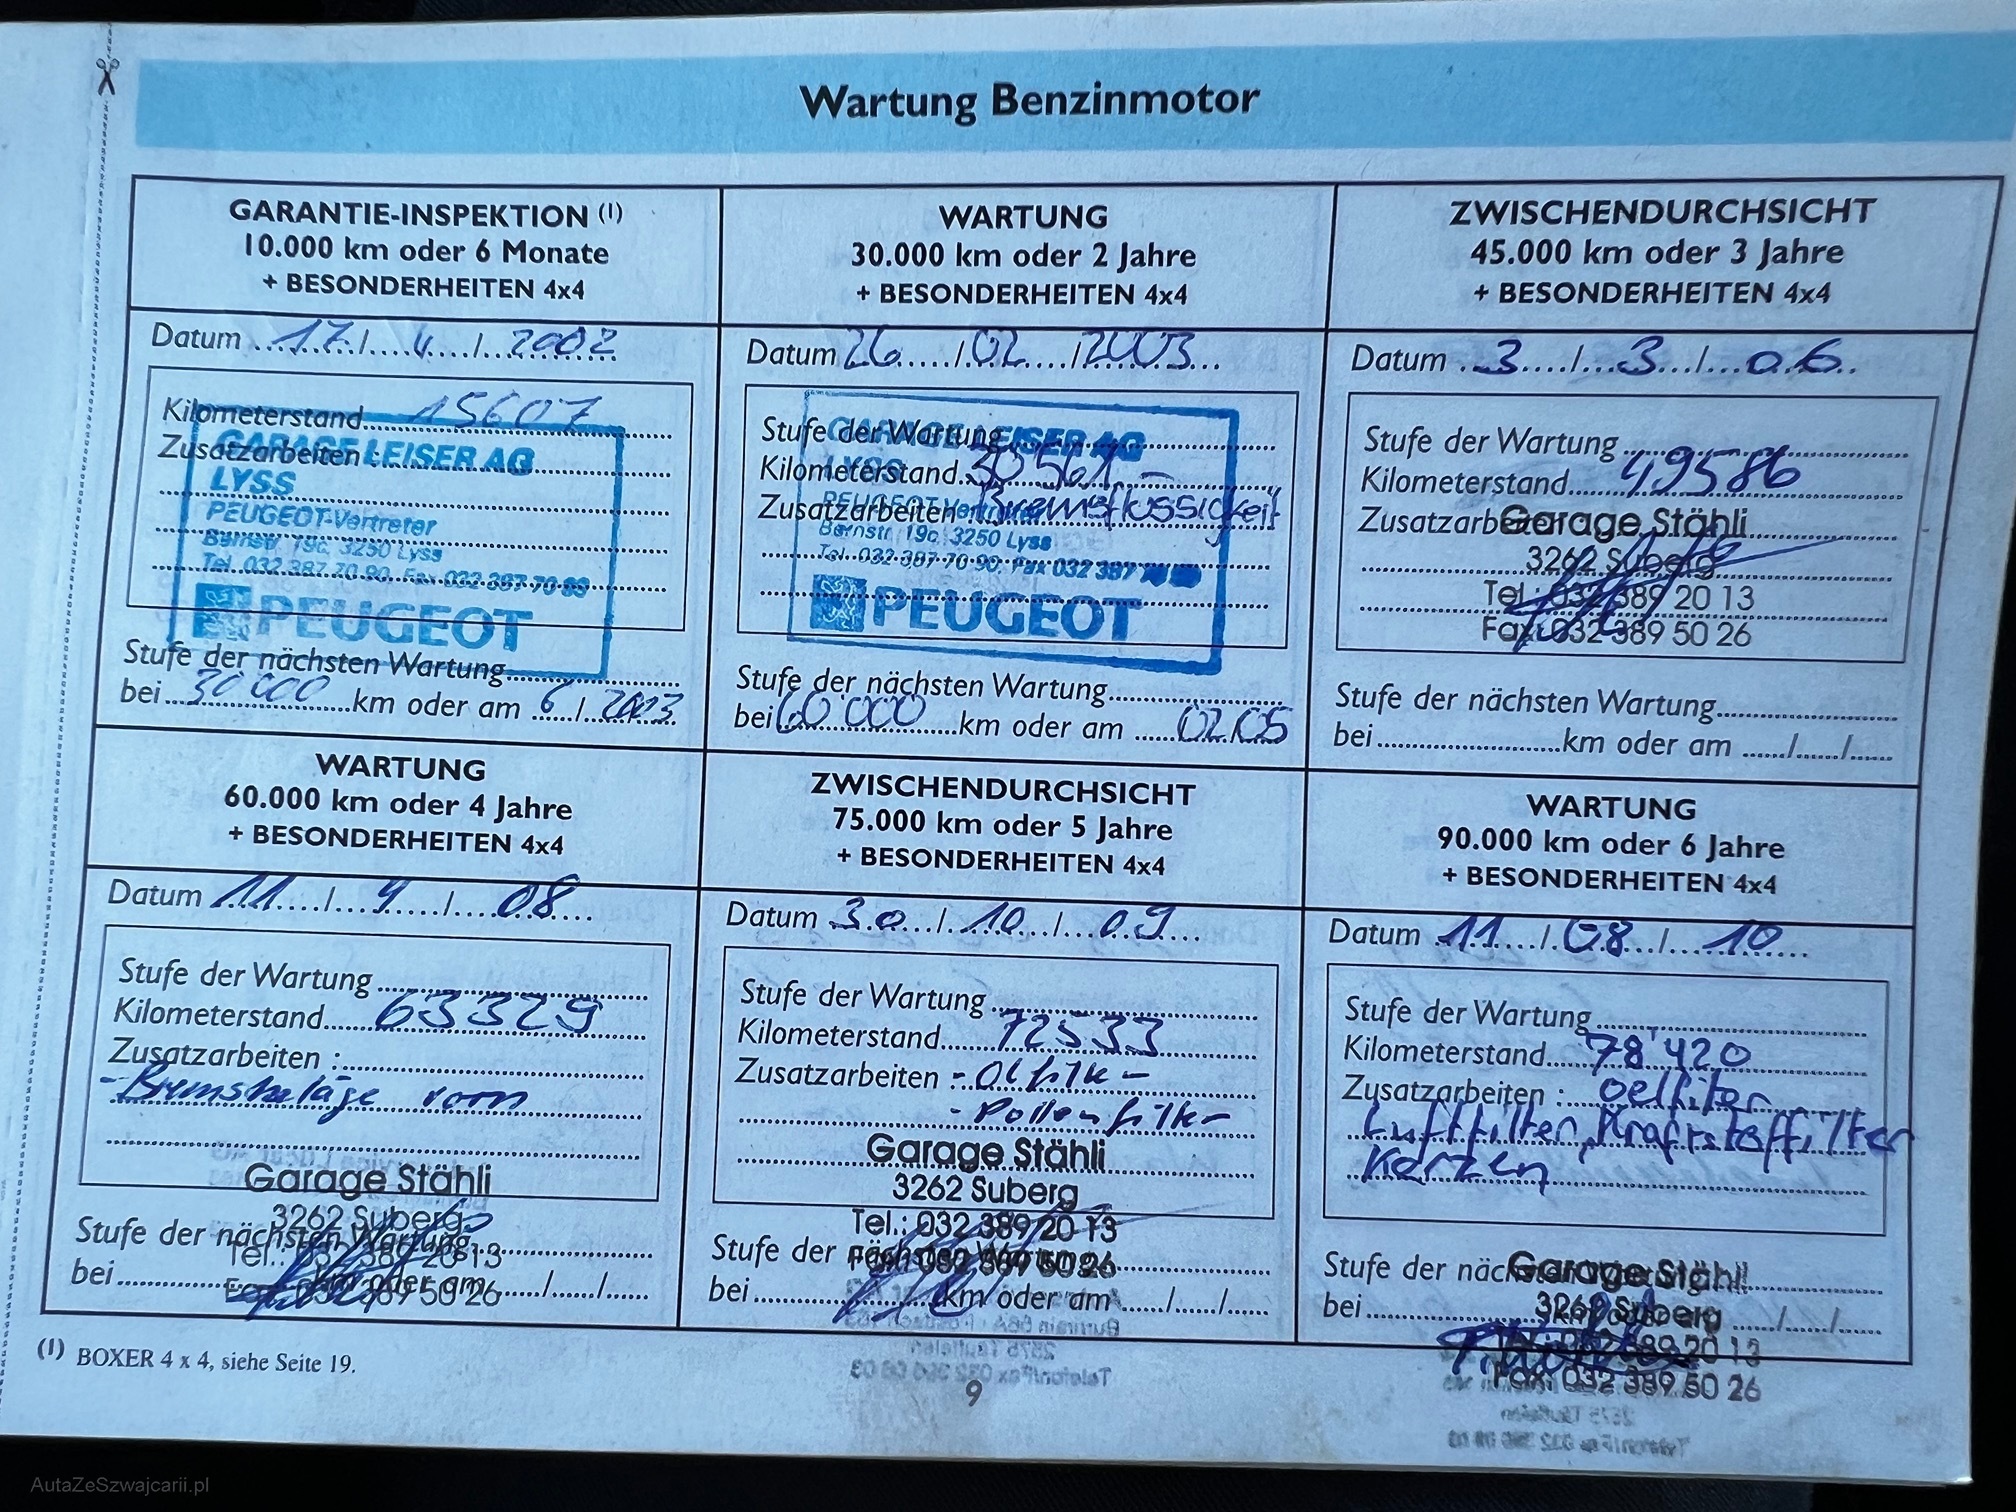 Wartung Benzinmotor
GARANTIE-INSPEKTION (1)
10.000 km oder 6 Monate
+ BESONDERHEITEN 4x4
Datum 17 / 4 / 2002
Kilometerstand 15607
Zusatzarbeiten :
GARAGE LEISER AG
LYSS
PEUGEOT-Vertreter
Bernstr. 19c, 3250 Lyss
Tel. 032 387 70 90, Fax 032 387 70 99
PEUGEOT
Stufe der nächsten Wartung
bei 30'000 km oder am 6 / 2003
WARTUNG
30.000 km oder 2 Jahre
+ BESONDERHEITEN 4x4
Datum 26 / 02 / 2003
Stufe der Wartung
GARAGE LEISER AG
LYSS
Kilometerstand 30561.-
Zusatzarbeiten Bremsflüssigkeit
PEUGEOT-Vertreter
Bernstr. 19c, 3250 Lyss
Tel. 032 387 70 90, Fax 032 387
PEUGEOT
Stufe der nächsten Wartung
bei 60'000 km oder am 02.05
ZWISCHENDURCHSICHT
45.000 km oder 3 Jahre
+ BESONDERHEITEN 4x4
Datum 3 / 3 / 06
Stufe der Wartung
Kilometerstand 49586
Zusatzarbeiten
Garage Stähli
3262 Suberg
Tel.: 032 389 20 13
Fax: 032 389 50 26
Stufe der nächsten Wartung
bei km oder am / /
WARTUNG
60.000 km oder 4 Jahre
+ BESONDERHEITEN 4x4
Datum 11 / 4 / 08
Stufe der Wartung
Kilometerstand 63329
Zusatzarbeiten :
- Bremsbeläge vorn
Garage Stähli
3262 Suberg
Stufe der nächsten Wartung
Tel.: 032 389 20 13
bei km oder am / /
Fax: 032 389 50 26
ZWISCHENDURCHSICHT
75.000 km oder 5 Jahre
+ BESONDERHEITEN 4x4
Datum 30 / 10 / 09
Stufe der Wartung
Kilometerstand 72533
Zusatzarbeiten - Olfilter
- Pollenfilter
Garage Stähli
3262 Suberg
Tel.: 032 389 20 13
Stufe der nächsten Wartung
Fax: 032 389 50 26
bei km oder am / /
WARTUNG
90.000 km oder 6 Jahre
+ BESONDERHEITEN 4x4
Datum 11 / 08 / 10
Stufe der Wartung
Kilometerstand 78'420
Zusatzarbeiten : oelfilter
Luftfilter, Kraftstoffilter
Kerzen
Stufe der nächsten Wartung
Garage Stähli
3262 Suberg
bei km oder am / /
Tel.: 032 389 20 13
Fax: 032 389 50 26
(1) BOXER 4 x 4, siehe Seite 19.
9
AutaZeSzwajcarii.pl